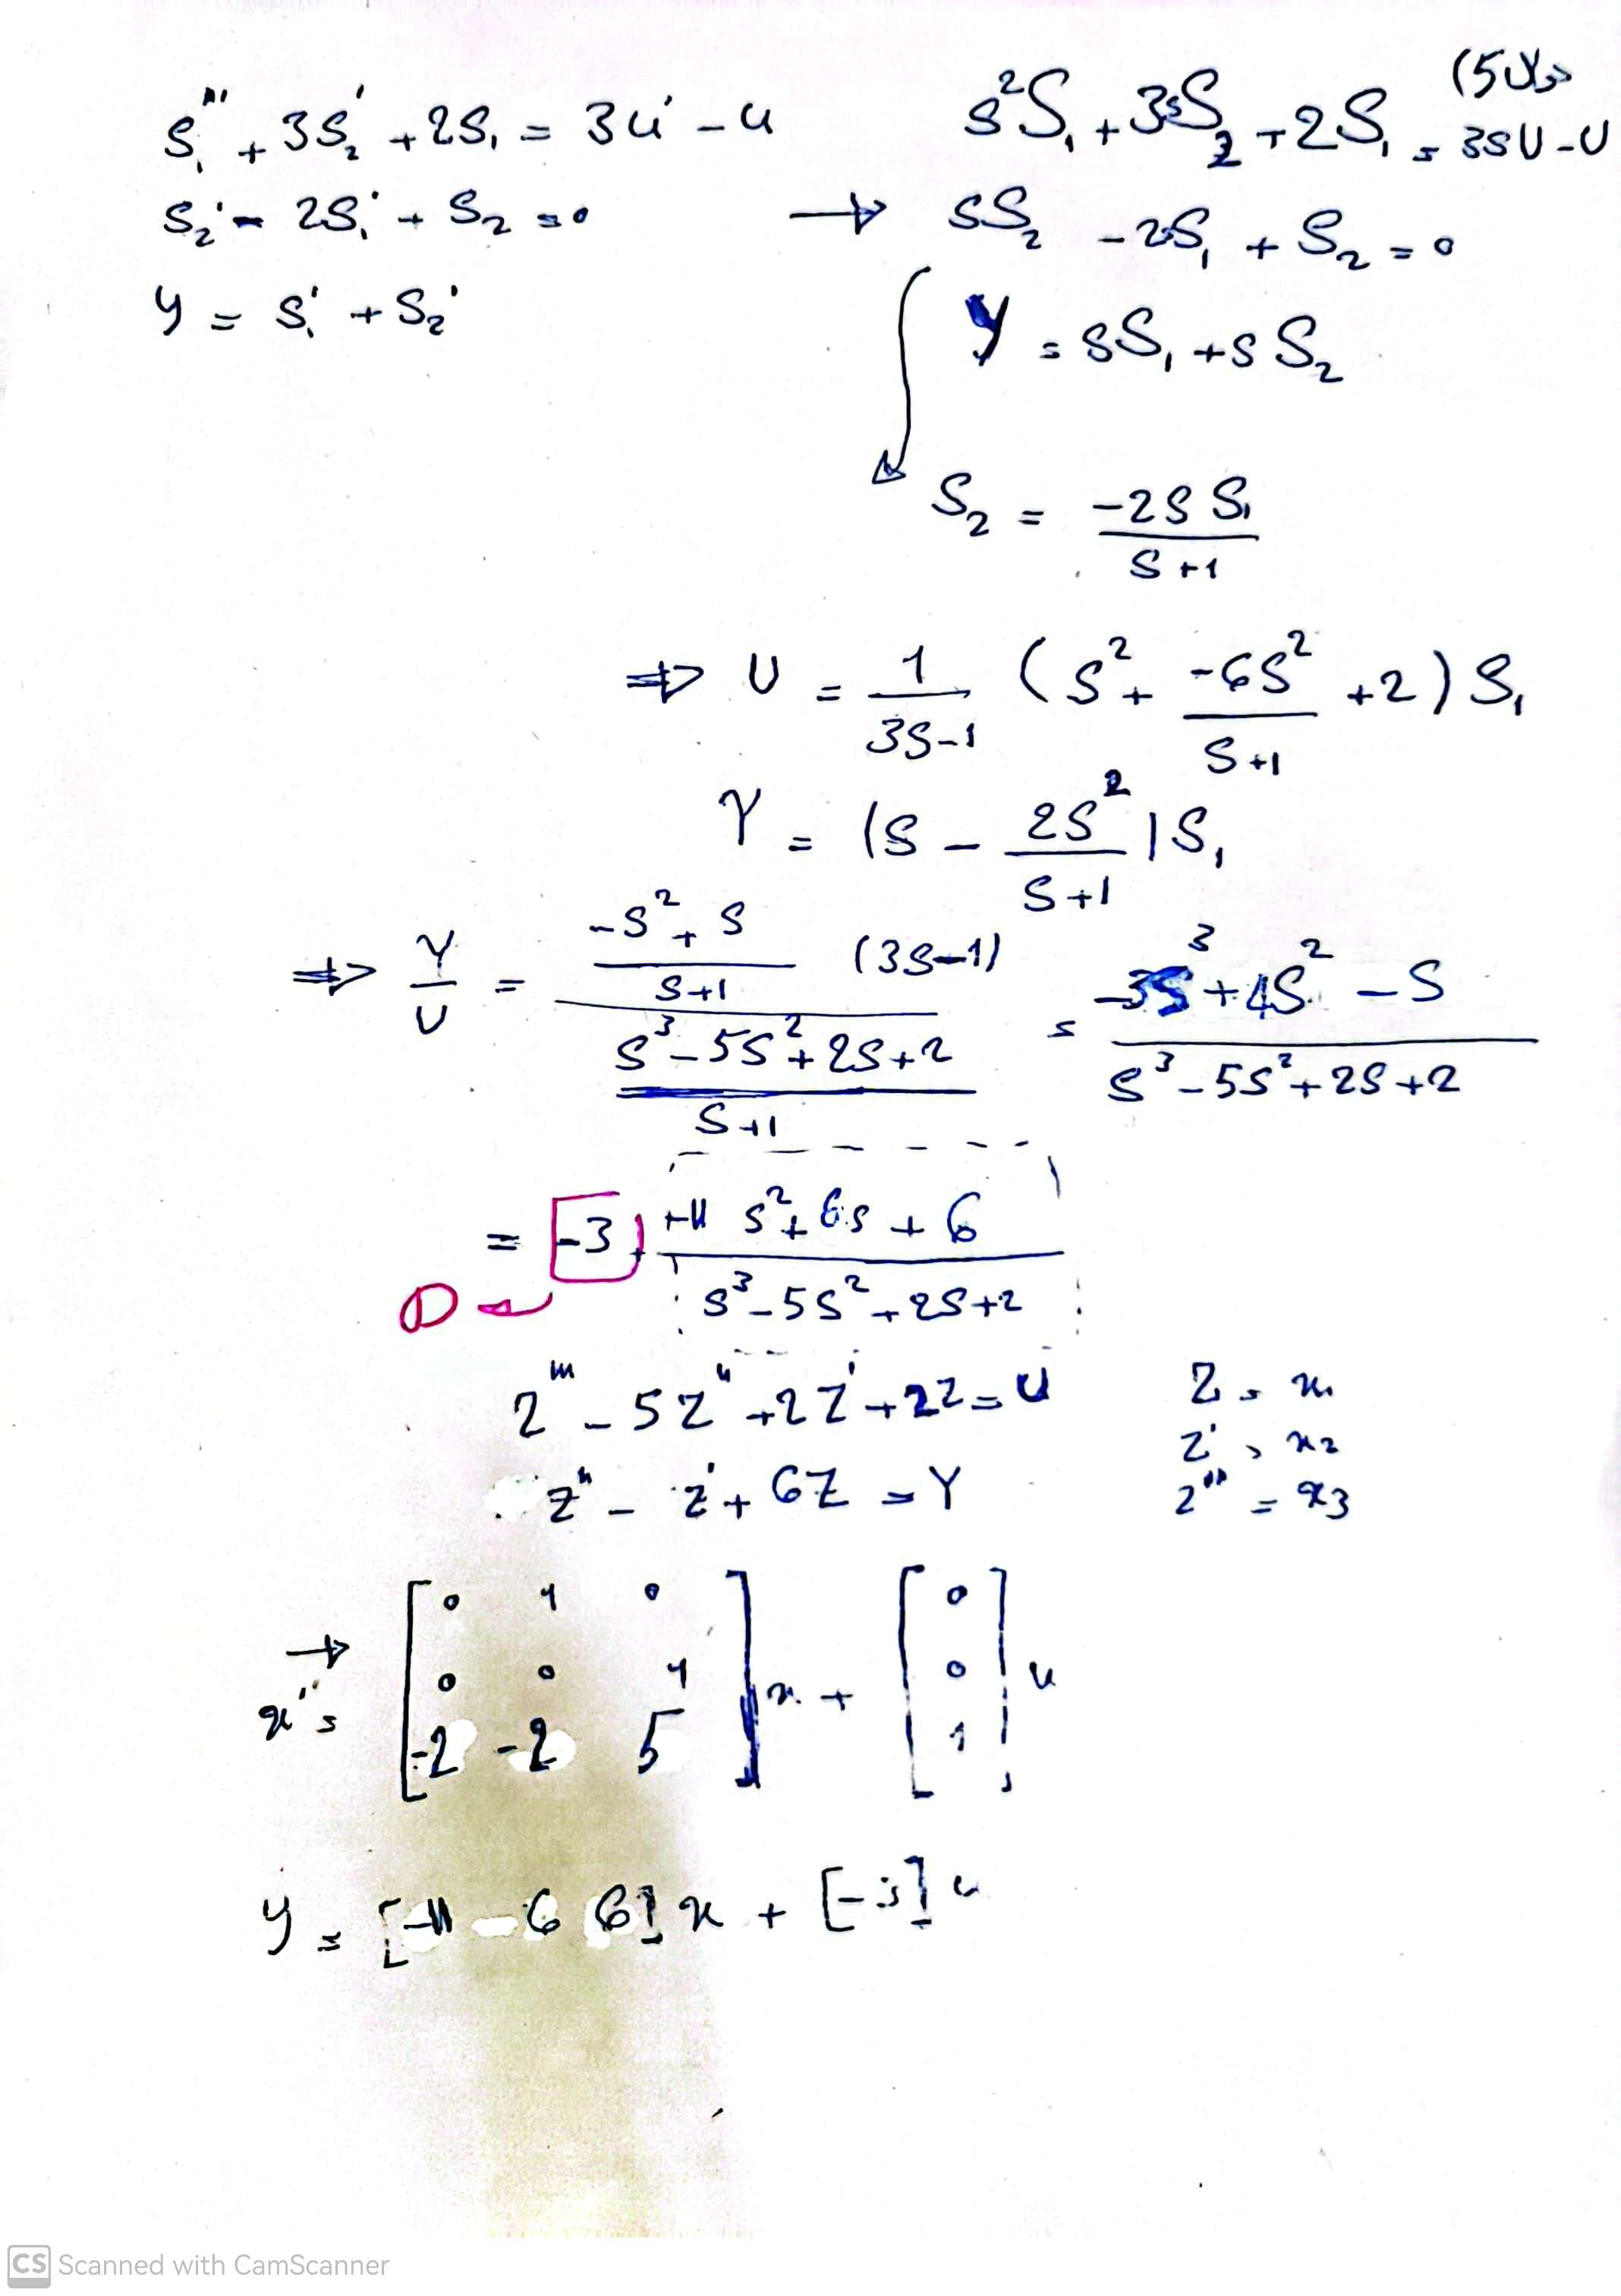 S₁'' + 3S₂' + 2S₁ = 3u' - u
S₂' - 2S₁' + S₂ = 0
y = S₁' + S₂'
s²S₁ + 3sS₂ + 2S₁ = 3sU - U
→ sS₂ - 2S₁ + S₂ = 0
Y = sS₁ + sS₂
S₂ = -2s S₁ / s+1
⇒ U = 1 / 3s-1 (s² + -6s² / s+1 + 2) S₁
Y = (s - 2s² / s+1) S₁
⇒ Y / U = -s² + s / s+1 (3s-1) / s³ - 5s² + 2s + 2 / s+1 = -3s³ + 4s² - s / s³ - 5s² + 2s + 2
= -3 + -11 s² + 6s + 6 / s³ - 5s² + 2s + 2
D
z''' - 5z'' + 2z' + 2z = U
z'' - z' + 6z = Y
z = x₁
z' = x₂
z'' = x₃
→
x' = [ 0 1 0
0 0 1
-2 -2 5 ] x + [ 0
0
1 ] u
y = [-11 -6 6] x + [-3] u
CS Scanned with CamScanner